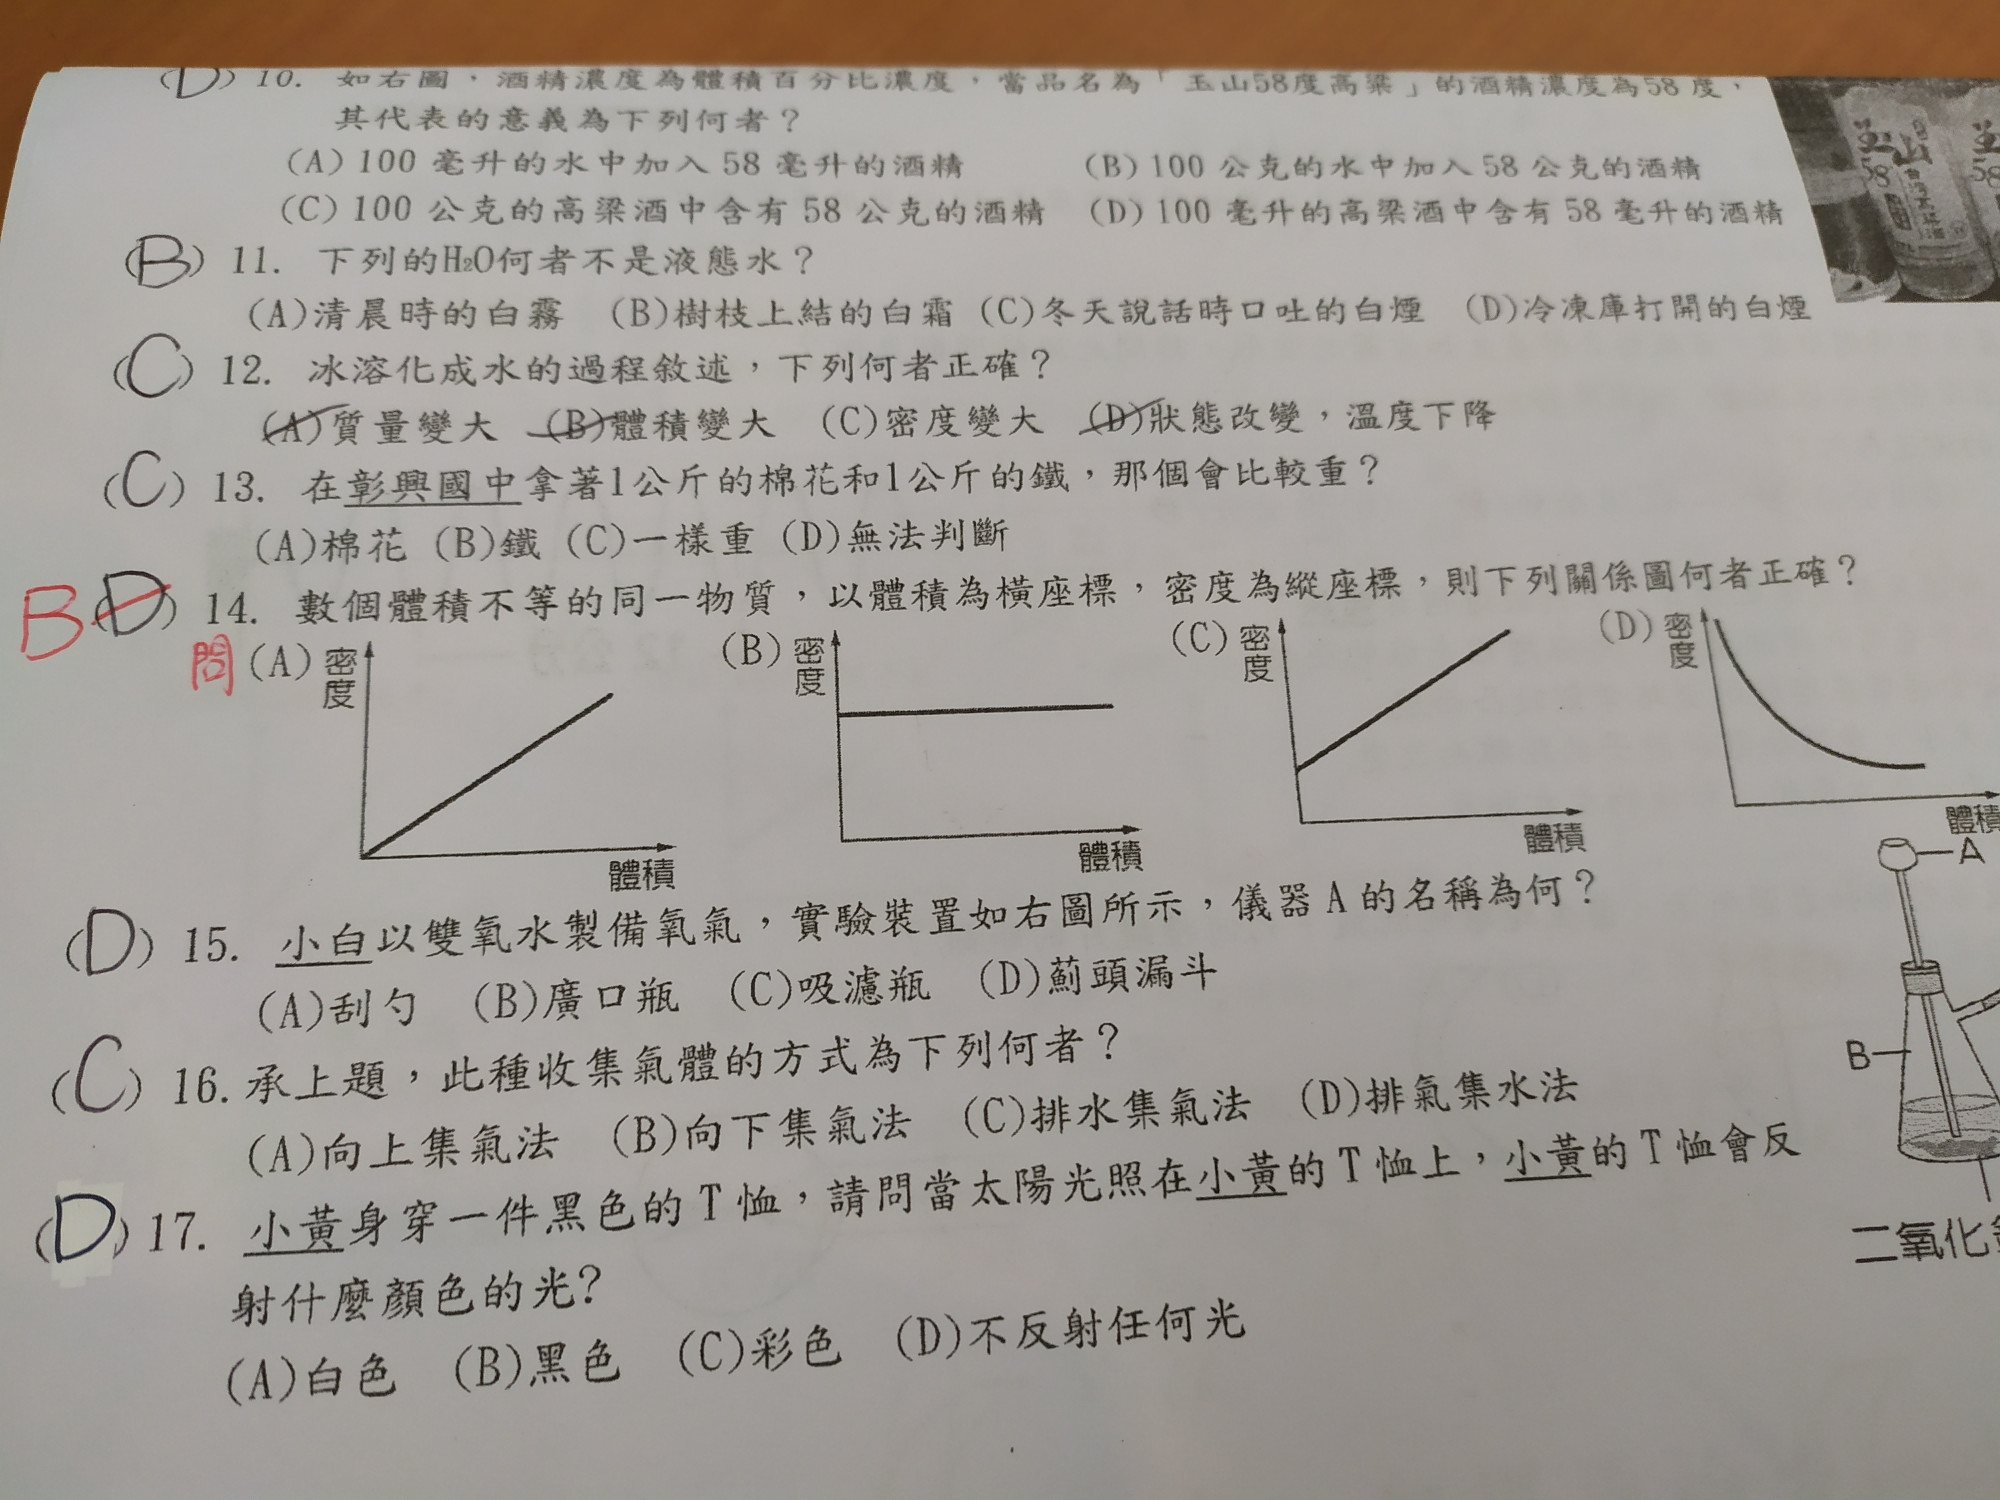 (D) 10. 如右圖，酒精濃度為體積百分比濃度，當品名為「玉山58度高粱」的酒精濃度為58度，
其代表的意義為下列何者？
(A) 100 毫升的水中加入 58 毫升的酒精 (B) 100 公克的水中加入 58 公克的酒精
(C) 100 公克的高粱酒中含有 58 公克的酒精 (D) 100 毫升的高粱酒中含有 58 毫升的酒精
玉山
58
玉
58
(B) 11. 下列的H₂O何者不是液態水？
(A)清晨時的白霧 (B)樹枝上結的白霜 (C)冬天說話時口吐的白煙 (D)冷凍庫打開的白煙
(C) 12. 冰溶化成水的過程敘述，下列何者正確？
(A)質量變大 (B)體積變大 (C)密度變大 (D)狀態改變，溫度下降
(C) 13. 在彰興國中拿著1公斤的棉花和1公斤的鐵，那個會比較重？
(A)棉花 (B)鐵 (C)一樣重 (D)無法判斷
B (D) 14. 數個體積不等的同一物質，以體積為橫座標，密度為縱座標，則下列關係圖何者正確？
問 (A) 密度 體積
(B) 密度 體積
(C) 密度 體積
(D) 密度 體積
(D) 15. 小白以雙氧水製備氧氣，實驗裝置如右圖所示，儀器 A 的名稱為何？
(A)刮勺 (B)廣口瓶 (C)吸濾瓶 (D)薊頭漏斗
A
B
二氧化
(C) 16. 承上題，此種收集氣體的方式為下列何者？
(A)向上集氣法 (B)向下集氣法 (C)排水集氣法 (D)排氣集水法
(D) 17. 小黃身穿一件黑色的 T 恤，請問當太陽光照在小黃的 T 恤上，小黃的 T 恤會反
射什麼顏色的光?
(A)白色 (B)黑色 (C)彩色 (D)不反射任何光